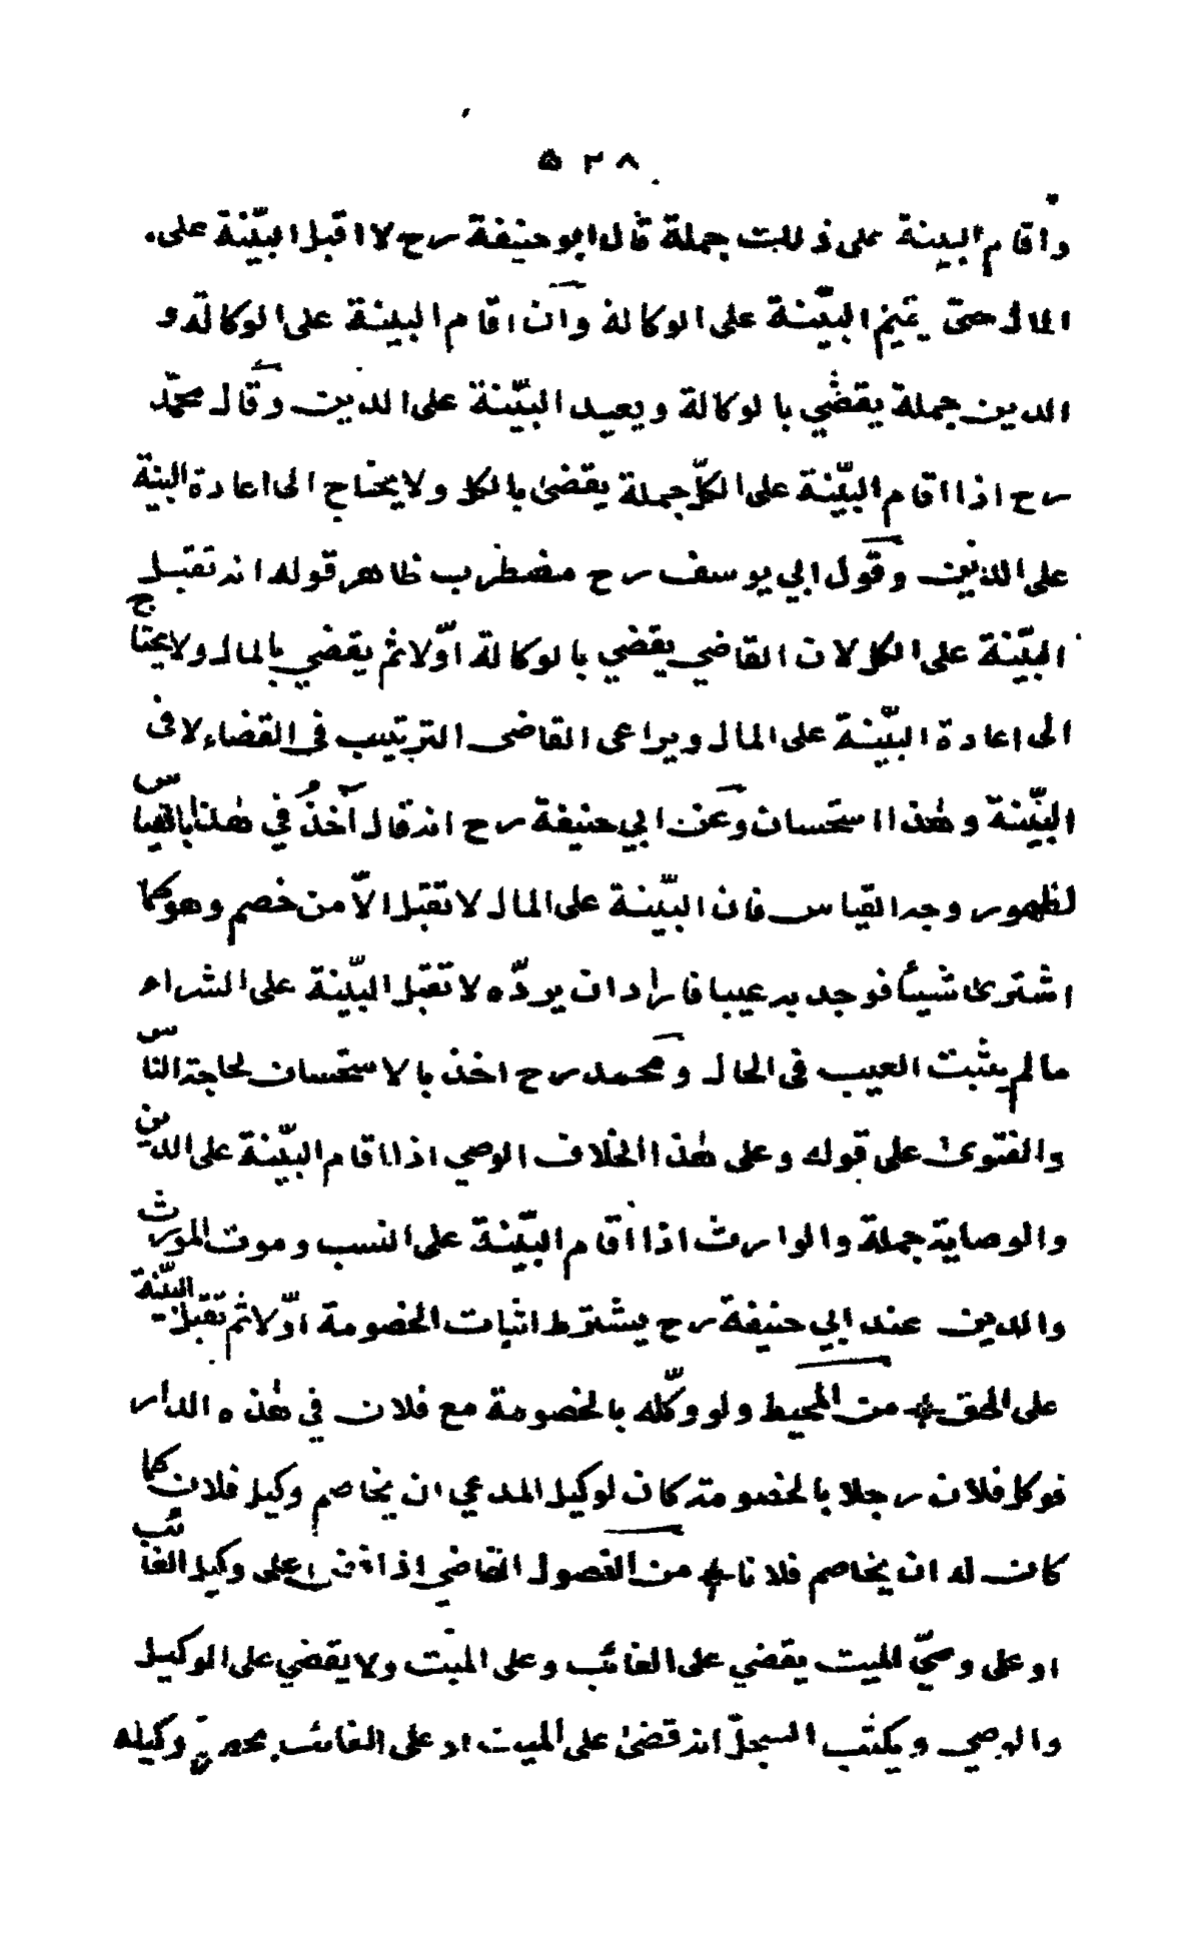 ٥٢٨
واقام البينة على ذلك جملة قال ابو حنيفة رح لا اقبل البيّنة على
المال حتى يقيم البيّنة على الوكالة وان اقام البينة على الوكالة و
الدين جملة يقضي بالوكالة ويعيد البيّنة على الدين وقال محمّد
رح اذا اقام البيّنة على الكلّ جملة يقضى بالكل ولا يحتاج الى اعادة البينة
على الدين وقول ابي يوسف رح مضطرب ظاهر قوله انه تقبل
البيّنة على الكل لان القاضي يقضي بالوكالة اوّلا ثم يقضي بالمال ولا يحتاج
الى اعادة البيّنة على المال ويراعى القاضى الترتيب فى القضاء لا فى
البيّنة وهٰذا استحسان وعن ابي حنيفة رح انه قال آخذُ في هٰذا بالقياس
لظهور وجه القياس فان البيّنة على المال لا تقبل الاّ من خصم وهو كما
اشترى شيئا فوجد به عيبا فاراد ان يردّه لا تقبل البيّنة على الشراء
مالم يثبت العيب فى الحال ومحمد رح اخذ بالاستحسان لحاجة الناس
والفتوى على قوله وعلى هٰذا الخلاف الوصي اذا اقام البيّنة على الدين
والوصاية جملة والوارث اذا اقام البيّنة على النسب وموت المورث
والدين عند ابي حنيفة رح يشترط اثبات الخصومة اوّلا ثم تقبل البيّنة
على الحق * من المحيط ولو وكّله بالخصومة مع فلان في هٰذه الدار
فوكل فلان رجلا بالخصومة كان لوكيل المدعي ان يخاصم وكيل فلان كما
كان له ان يخاصم فلانا * من الفصول القاضي اذا قضى على وكيل الغائب
او على وصيّ الميت يقضي على الغائب وعلى الميت ولا يقضي على الوكيل
والوصي ويكتب السجلّ انه قضى على الميت او على الغائب بحضرة وكيله